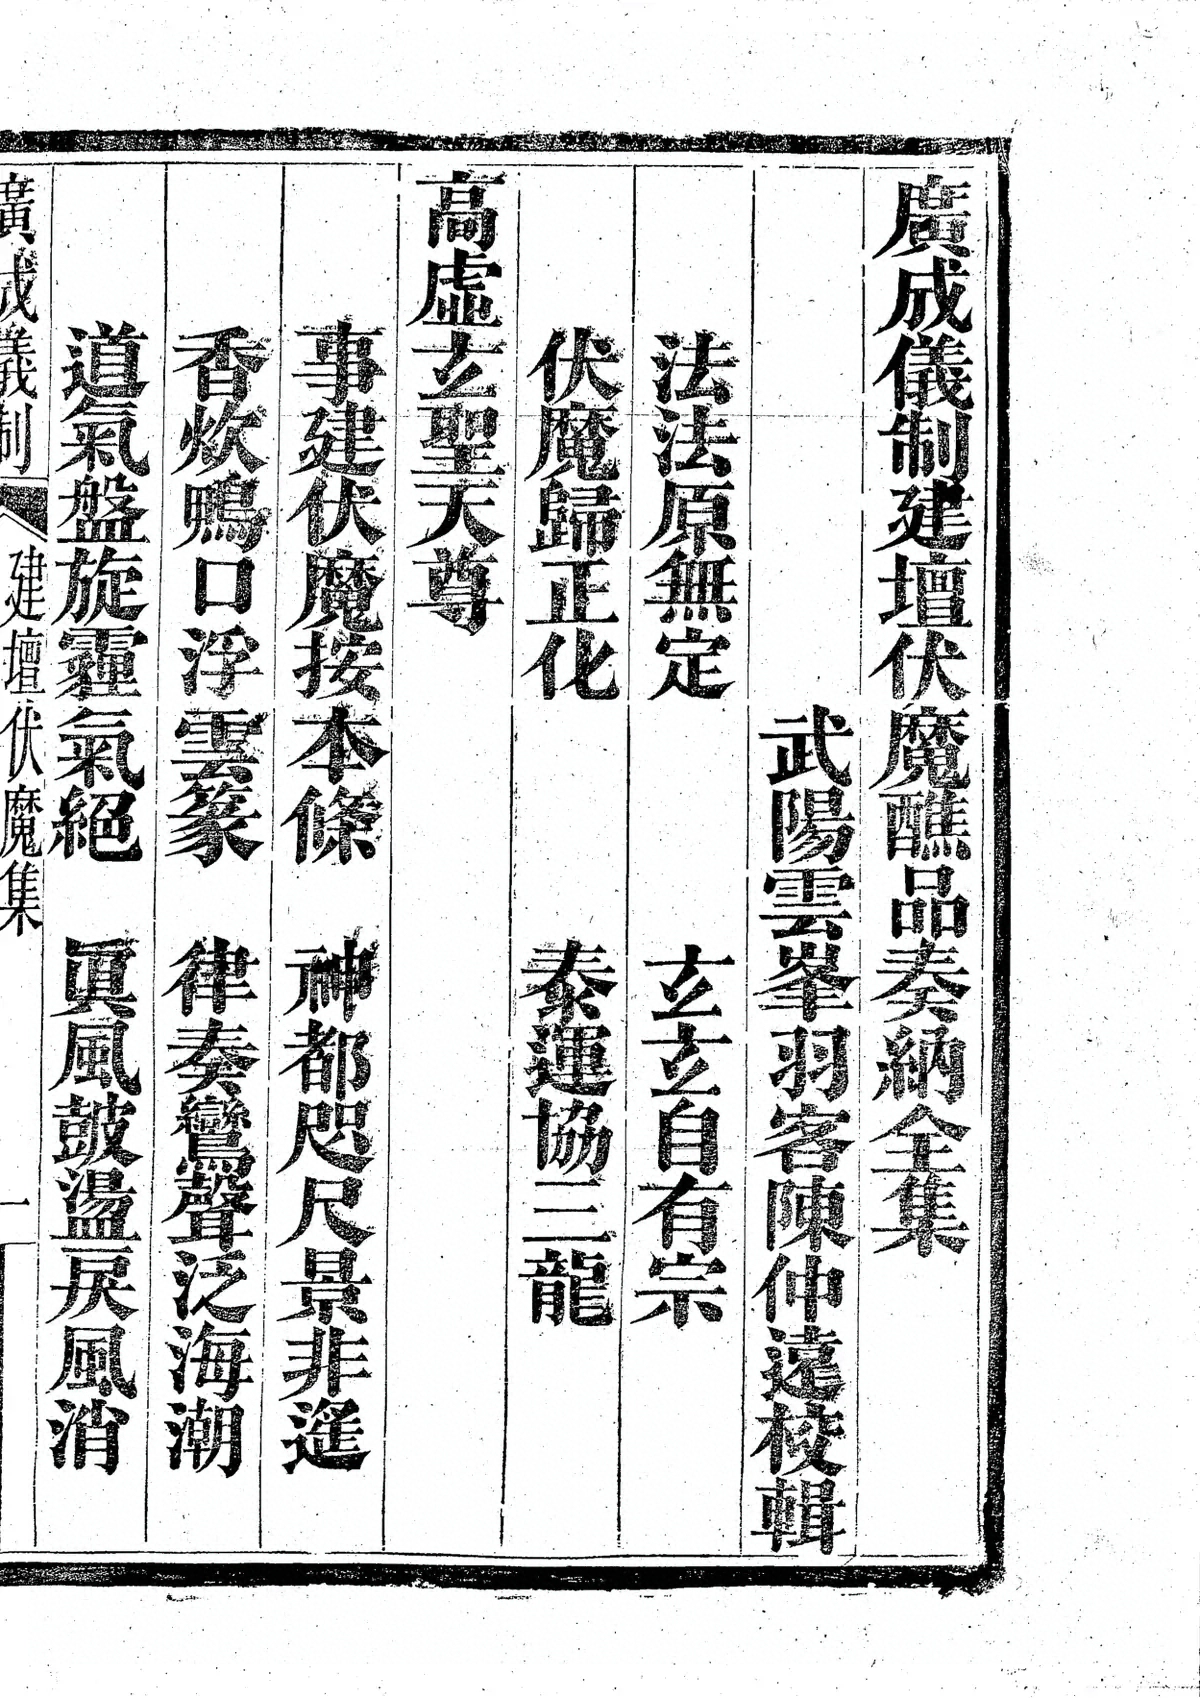 廣成儀制建壇伏魔醮品奏納全集
武陽雲峯羽客陳仲遠校輯
法法原無定　玄玄自有宗
伏魔歸正化　泰運協三龍
高虛玄聖天尊
事建伏魔按本條　神都咫尺景非遙
香炊鴨口浮雲篆　律奏鸞聲泛海潮
道氣盤旋霾氣絕　眞風鼓盪戾風消
廣成儀制　建壇伏魔集　一